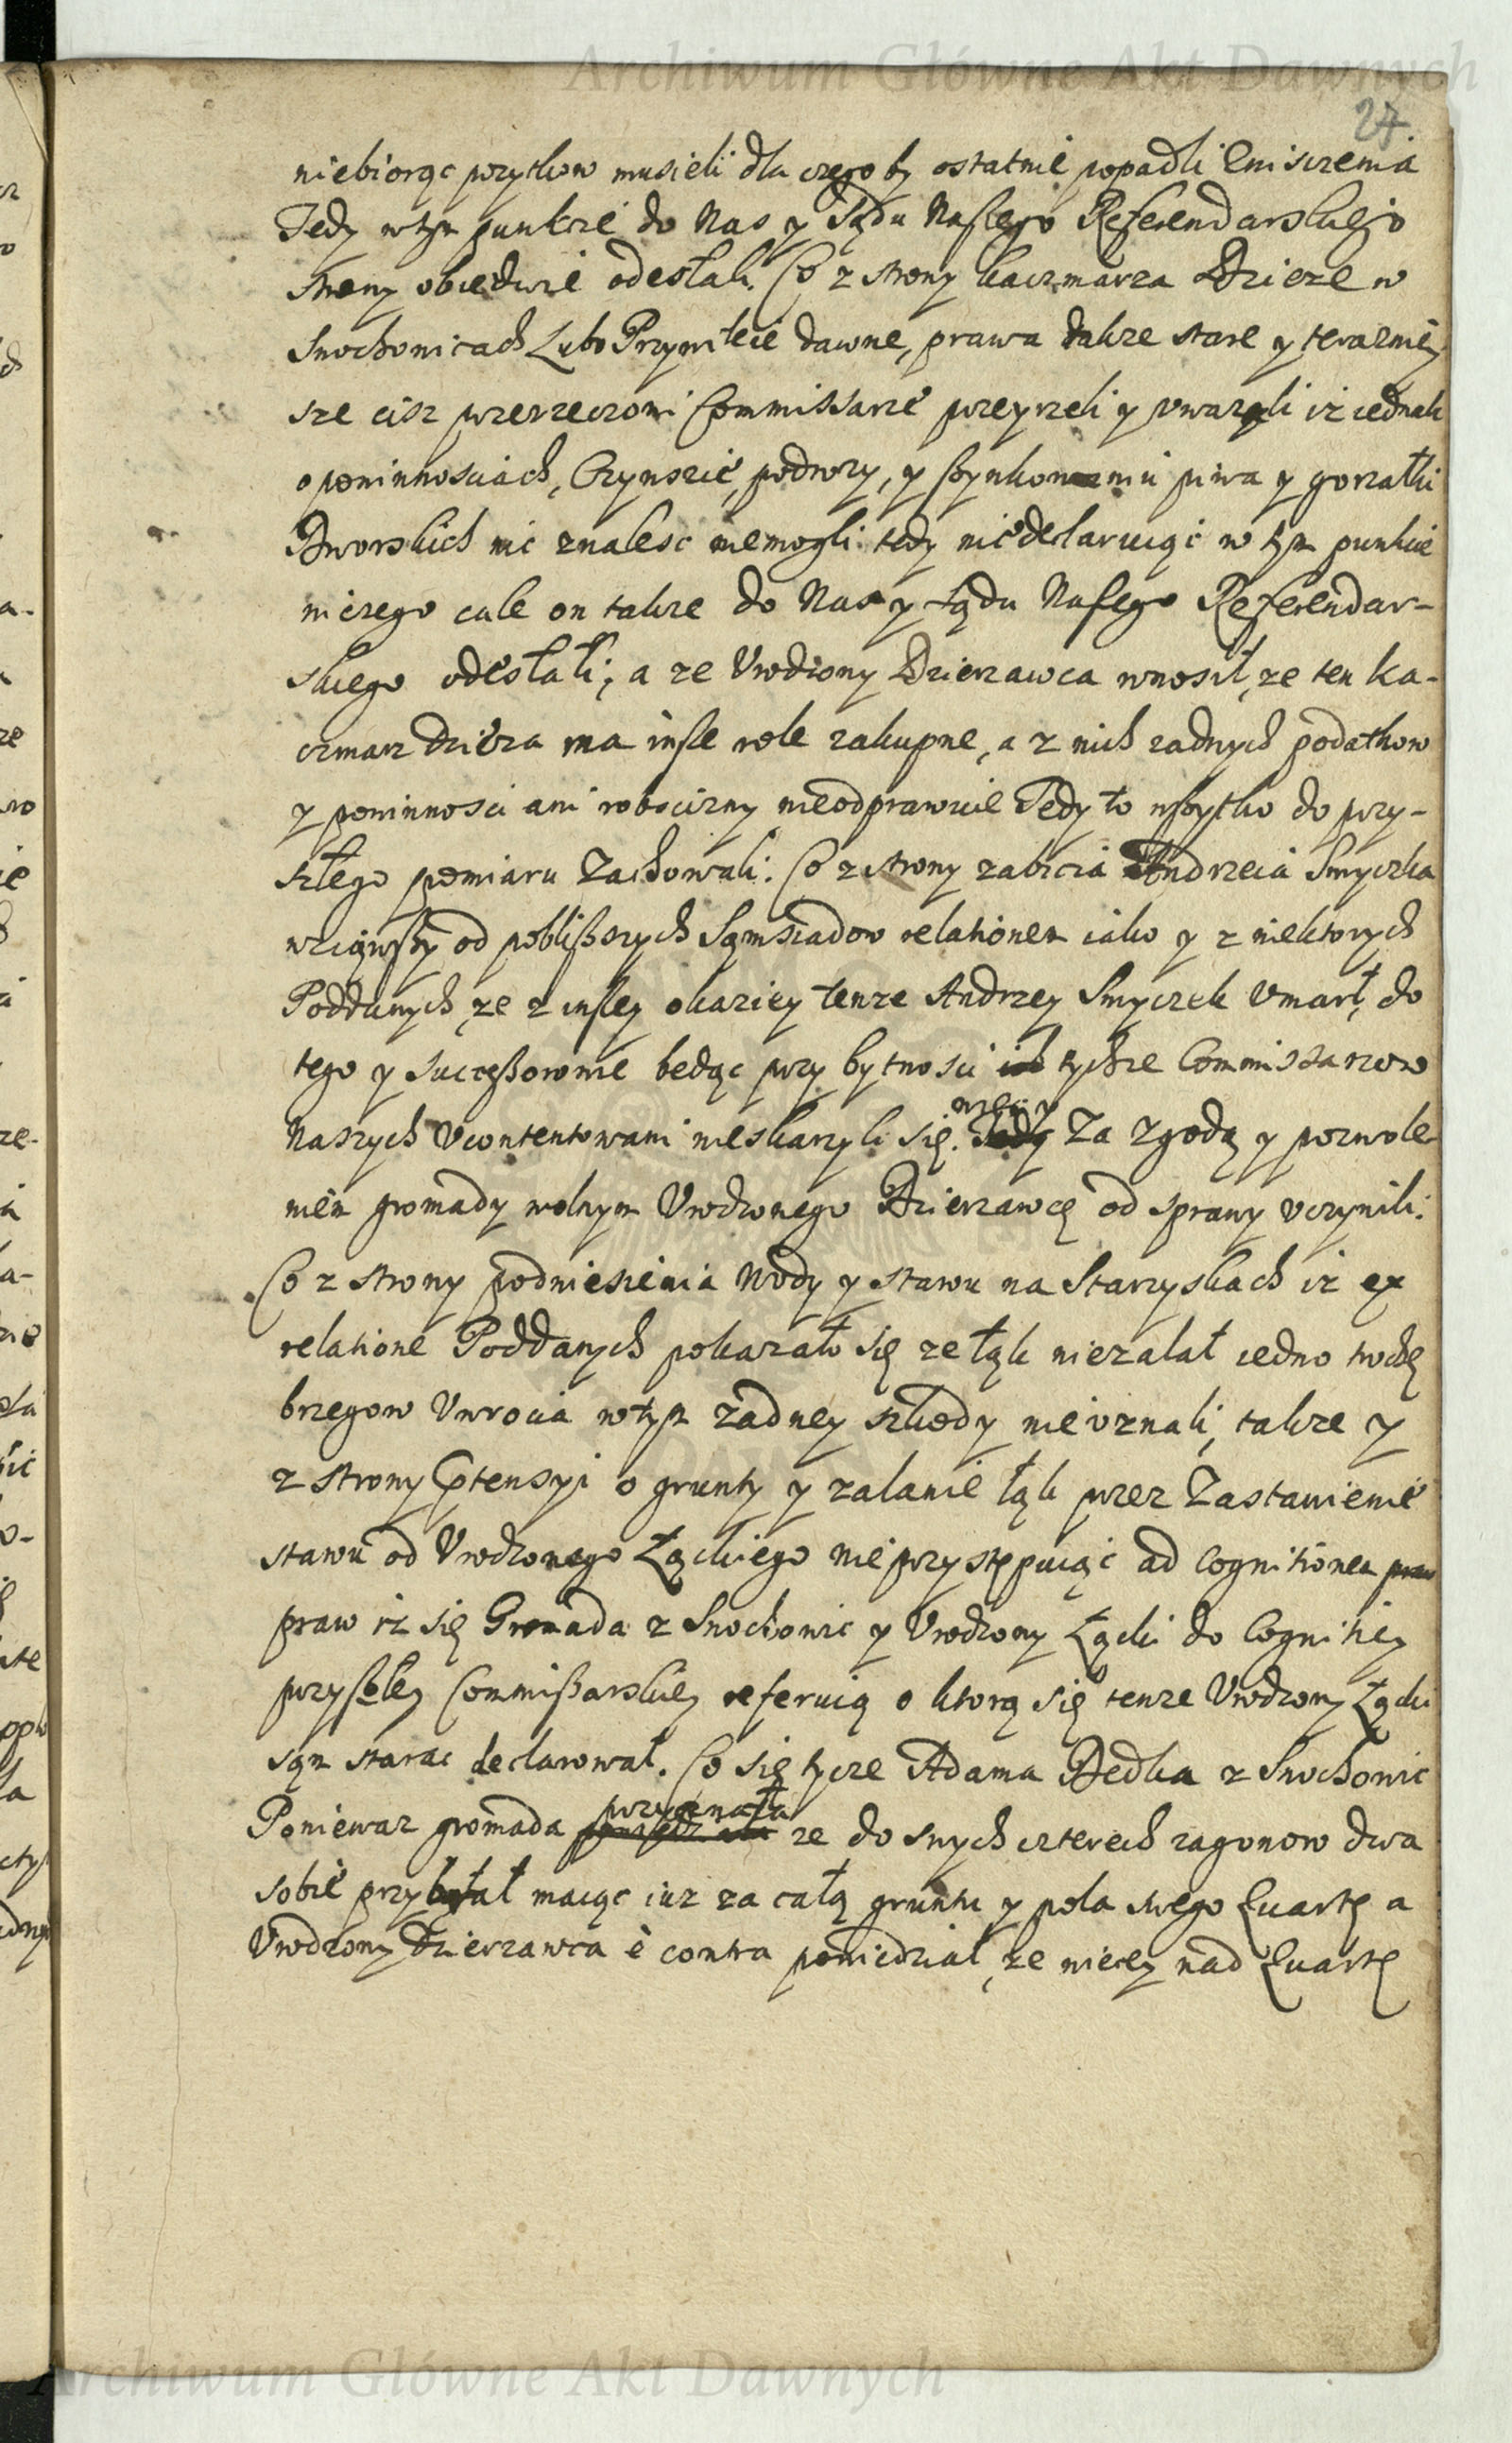 Archiwum Główne Akt Dawnych
27.
niebiorąc pozytkow musieli dla czego by ostatnie popadli zniszczenia
Tedy w tym punkcie do Nas y Sądu Naszego Referendarskiego
strony obiedwie odesłali. Co z strony kaczmarza Dzieze w
Snochowicach Lubo Przywileie dawne, prawa także stare y terazniey
sze cisz przerzeczoni Commissarze przeyrzeli y uwazali iz iednak
o powinnosciach, Czynszie, podwozy, y szynkowaniu piwa y gorzałki
Dworskich nic znalesc niemogli tedy niedeclaruiąc w tym punkcie
niczego cale on takze do Nas y Sądu Naszego Referendar-
skiego odesłali; a ze Urodzony Dzierzawca wnosił, ze ten Ka-
czmarz Dzieza ma insze role zakupne, a z nich zadnych podatkow
y powinnosci ani robocizny nieodprawuie Tedy to wszytko do przy-
szłego pomiaru Zachowali. Co z strony zabicia Andrzeia Smyczka
wziąwszy od poblisszych Sąmsiadow relationem iako y z niektorych
Poddanych, ze z inszey okaziey tenze Andrzey Smyczek Umarł, do
tego y successorowie bedąc przy bytnosci tychze Commissarzow
Naszych Ucontentowani nieskarzyli się. Za Zgodą y pozwole
niem gromady wolnym Urodzonego Dzierzawcę od sprawy uczynili.
Co z strony podniesienia Wody y stawu na Starzyskach iz ex
relatione Poddanych pokazało się ze łąk niezalał iedno trochę
brzegow Uwrocia w tym zadney szkody nieuznali, takze y
z strony Ptensyi o grunty y zalanie łąk przez Zastawienie
stawu od Urodzonego Łąckiego nieprzystępuiąc ad Cognitionem praw
praw iz się Gromada z Snochowic y Urodzony Łącki do Cognitiey
przyszłey Commissarskiey referuią o ktorą się tenze Urodzony Łącki
sąm starac declarował. Co się tycze Adama Bedka z Snochowic
Poniewaz gromada przyznała ze do swych czterech zagonow dwa
sobie przybrał maiąc iuz za całą gruntu y pola swego Quartę a
Urodzony Dzierzawca è contra powiedział, ze wiecey nad Quartę
Archiwum Główne Akt Dawnych